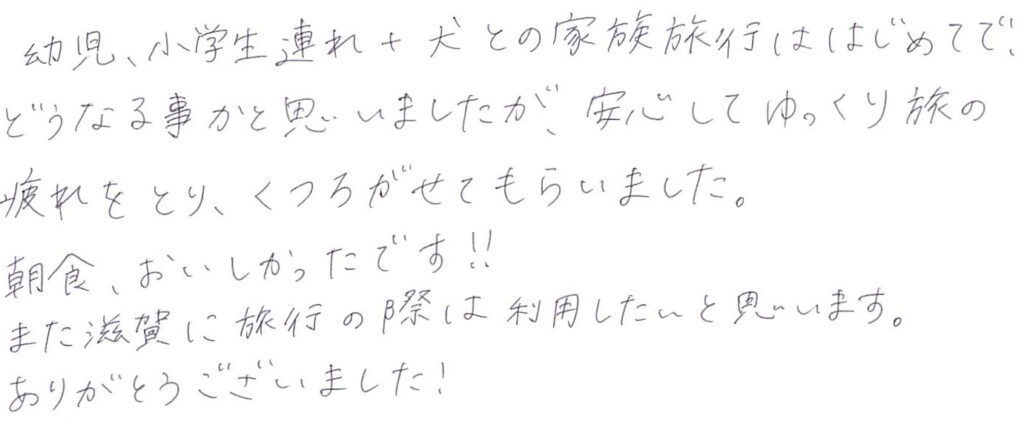 幼児、小学生連れ+犬との家族旅行ははじめてで、
どうなる事かと思いましたが、安心してゆっくり旅の
疲れをとり、くつろがせてもらいました。
朝食、おいしかったです!!
また滋賀に旅行の際は利用したいと思います。
ありがとうございました!